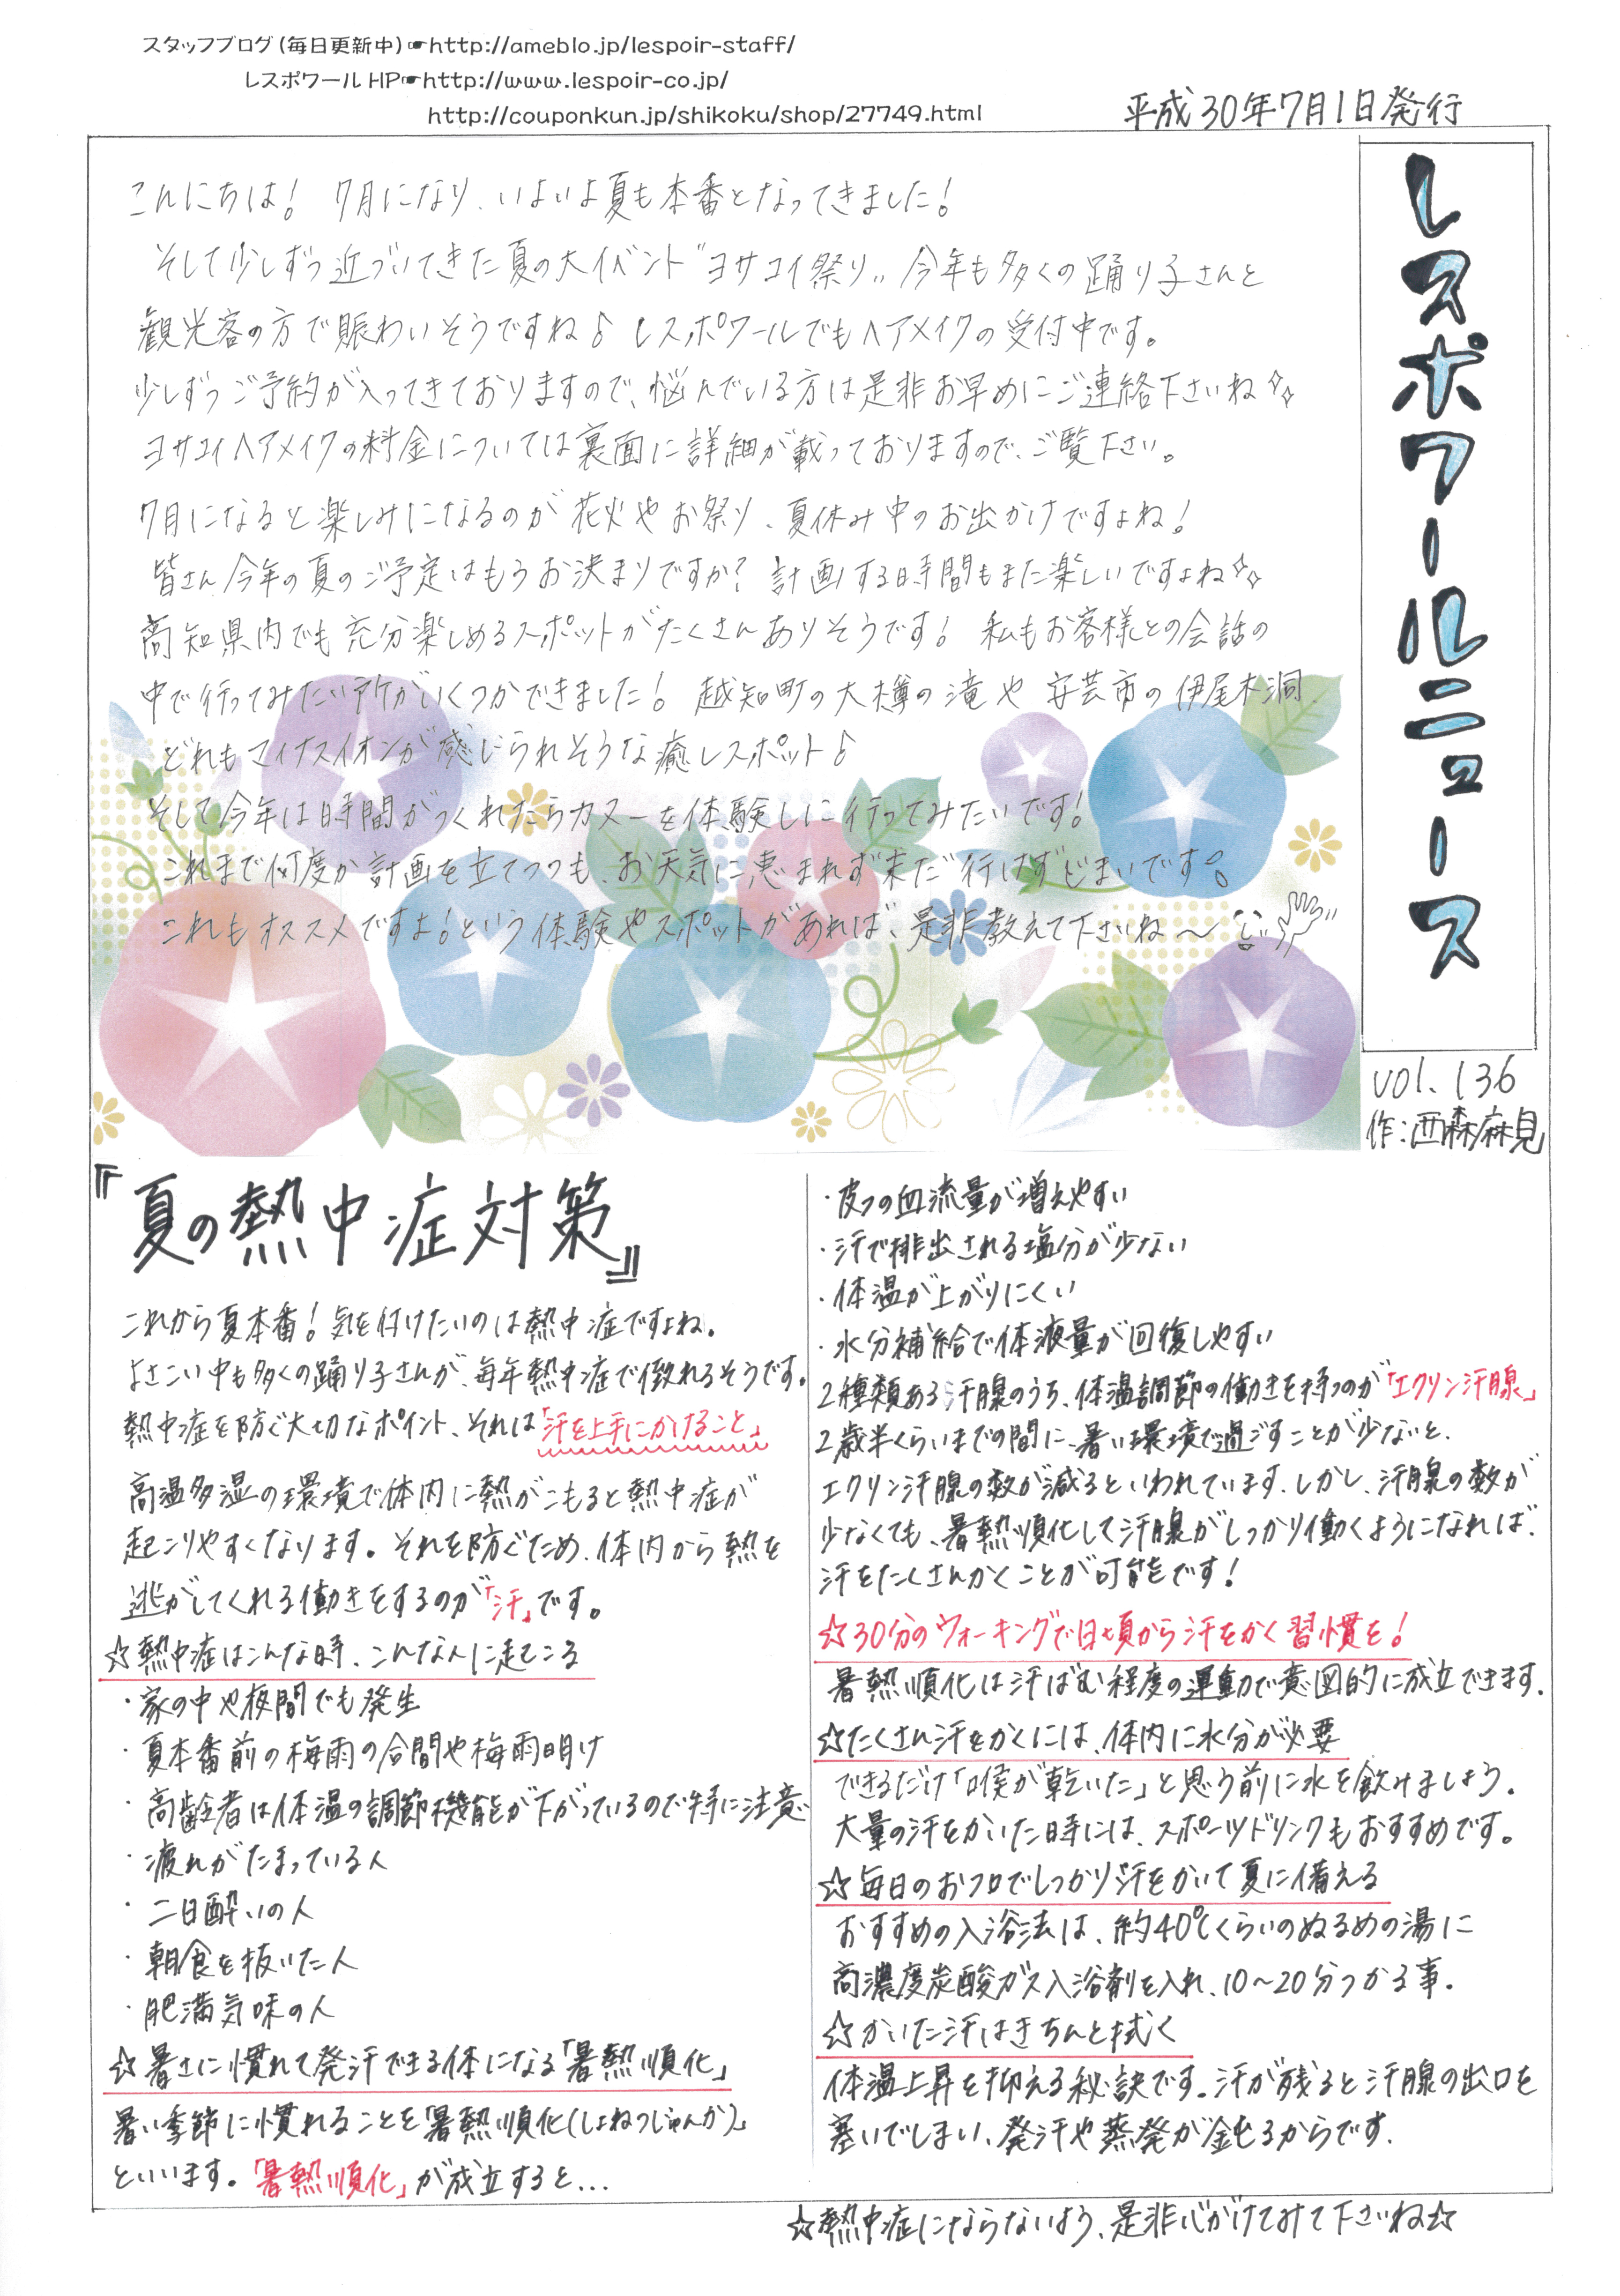 スタッフブログ(毎日更新中)☛http://ameblo.jp/lespoir-staff/
レスポワールHP☛http://www.lespoir-co.jp/
http://couponkun.jp/shikoku/shop/27749.html
平成30年7月1日発行
レスポワールニュース
vol.136
作:西森麻見
こんにちは! 7月になり、いよいよ夏も本番となってきました!
そして少しずつ近づいてきた夏の大イベント"ヨサコイ祭り" 今年も多くの踊り子さんと
観光客の方で賑わいそうですね♪ レスポワールでもヘアメイクの受付中です。
少しずつご予約が入ってきておりますので、悩んでいる方は是非お早めにご連絡下さいね✧✧
ヨサコイヘアメイクの料金については裏面に詳細が載っておりますので、ご覧下さい。
7月になると楽しみになるのが花火やお祭り、夏休み中のお出かけですよね!
皆さん今年の夏のご予定はもうお決まりですか? 計画する時間もまた楽しいですよね✧✧
高知県内でも充分楽しめるスポットがたくさんありそうです! 私もお客様との会話の
中で行ってみたい所がいくつかできました! 越知町の大樽の滝や安芸市の伊尾木洞
どれもマイナスイオンが感じられそうな癒しスポット♪
そして今年は時間がつくれたらカヌーを体験しに行ってみたいです!
これまで何度か計画を立てつつも、お天気に恵まれず未だ行けずじまいです。
これもオススメですよ!という体験やスポットがあれば、是非教えて下さいね〜
『夏の熱中症対策』
これから夏本番!気を付けたいのは熱中症ですよね。
よさこい中も多くの踊り子さんが、毎年熱中症で倒れるそうです。
熱中症を防ぐ大切なポイント、それは「汗を上手にかけること」
高温多湿の環境で体内に熱がこもると熱中症が
起こりやすくなります。それを防ぐため、体内から熱を
逃がしてくれる働きをするのが「汗」です。
☆熱中症はこんな時、こんな人に起こる
・家の中や夜間でも発生
・夏本番前の梅雨の合間や梅雨明け
・高齢者は体温の調節機能が下がっているので特に注意
・疲れがたまっている人
・二日酔いの人
・朝食を抜いた人
・肥満気味の人
☆暑さに慣れて発汗できる体になる「暑熱順化」
暑い季節に慣れることを「暑熱順化(しょねつじゅんか)」
といいます。「暑熱順化」が成立すると...
・皮フの血流量が増えやすい
・汗で排出される塩分が少ない
・体温が上がりにくい
・水分補給で体液量が回復しやすい
2種類ある汗腺のうち、体温調節の働きを持つのが「エクリン汗腺」
2歳半くらいまでの間に、暑い環境で過ごすことが少ないと、
エクリン汗腺の数が減るといわれています。しかし、汗腺の数が
少なくても、暑熱順化して汗腺がしっかり働くようになれば、
汗をたくさんかくことが可能です!
☆30分のウォーキングで日頃から汗をかく習慣を!
暑熱順化は汗ばむ程度の運動で意図的に成立できます。
☆たくさん汗をかくには、体内に水分が必要
できるだけ「喉が乾いた」と思う前に水を飲みましょう。
大量の汗をかいた時には、スポーツドリンクもおすすめです。
☆毎日のおフロでしっかり汗をかいて夏に備える
おすすめの入浴法は、約40℃くらいのぬるめの湯に
高濃度炭酸ガス入浴剤を入れ、10〜20分つかる事。
☆かいた汗はきちんと拭く
体温上昇を抑える秘訣です。汗が残ると汗腺の出口を
塞いでしまい、発汗や蒸発が鈍るからです。
☆熱中症にならないよう、是非心がけてみて下さいね☆